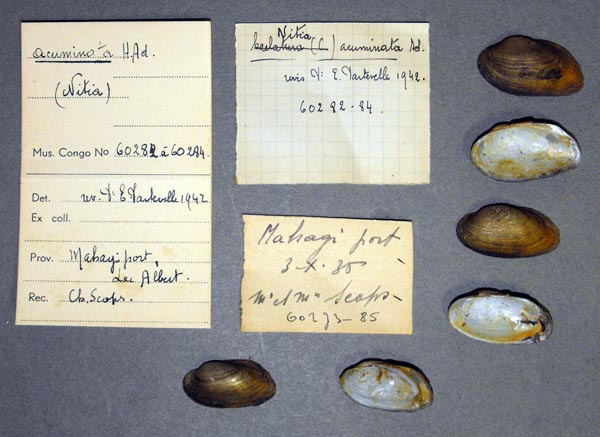 acuminata H.Ad.
(Nitia)
Mus. Congo No 60282 à 60284
Det. rev. Dr E. Dartevelle 1942
Ex coll.
Prov. Mahagi port,
Lac Albert.
Rec. Ch. Scops.
Nitia
(C) acuminata Ad.
revis Dr E. Dartevelle 1942.
60282-84.
Mahagi port
3-X-35
Mr et Me Scops-
60273-85